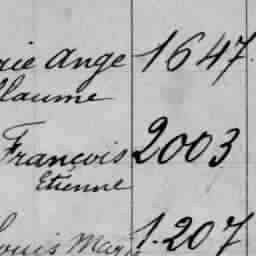 rie Ange 1647.
llaume
François 2003
Etienne
ouis Marie 1.207